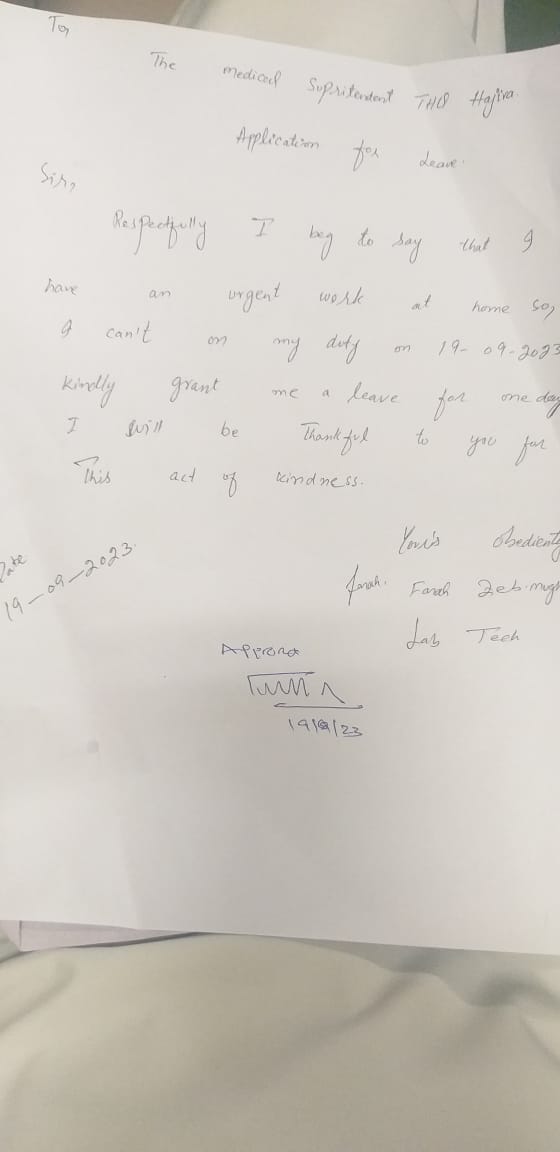 To,
The medical Supritendent THQ Hajira.
Application for Leave.
Sir,
Respectfully I beg to say that I
have an urgent work at home so,
I can't on my duty on 19-09-2023
kindly grant me a leave for one day
I will be Thankful to you for
This act of kindness.
Your's Obediently
Farah. Farah Zeb.mugh
Date
19-09-2023.
Lab Tech
Approved
19/9/23